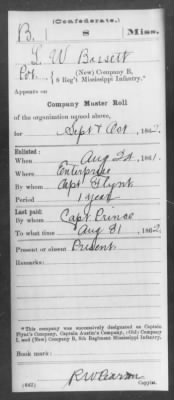 (Confederate.)
B. 8 Miss.
L. W. Bassett
Pvt., { (New) Company B,
8 Reg't Mississippi Infantry.*
Appears on
Company Muster Roll
of the organization named above,
for Sept & Oct, 1862.
Enlisted:
When Aug 24, 1861.
Where Enterprise
By whom Capt Flynt
Period 1 year
Last paid:
By whom Capt Prince
To what time Aug 31, 1862.
Present or absent Present
Remarks:
*This company was successively designated as Captain
Flynt's Company, Captain Austin's Company, (Old) Company
and (New) Company B, 8th Regiment Mississippi Infantry.
Book mark:
R W Pearson
(642) Copyist.